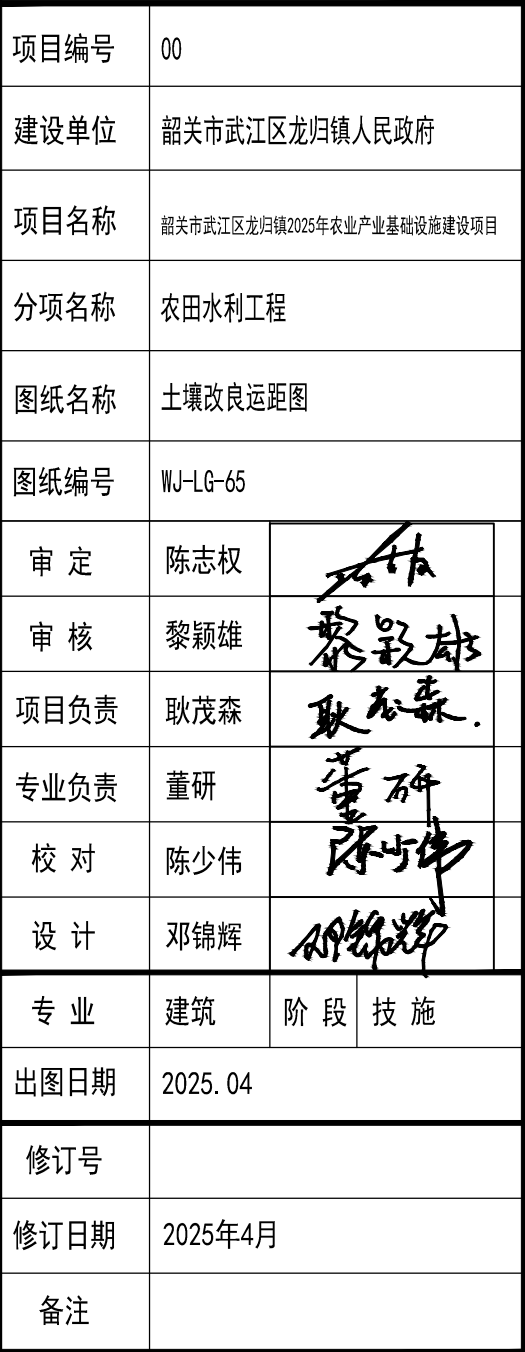 项目编号 00
建设单位 韶关市武江区龙归镇人民政府
项目名称 韶关市武江区龙归镇2025年农业产业基础设施建设项目
分项名称 农田水利工程
图纸名称 土壤改良运距图
图纸编号 WJ-LG-65
审 定 陈志权
审 核 黎颖雄 黎颖雄
项目负责 耿茂森 耿茂森
专业负责 董研 董研
校 对 陈少伟 陈少伟
设 计 邓锦辉 邓锦辉
专 业 建筑 阶 段 技 施
出图日期 2025.04
修订号
修订日期 2025年4月
备注